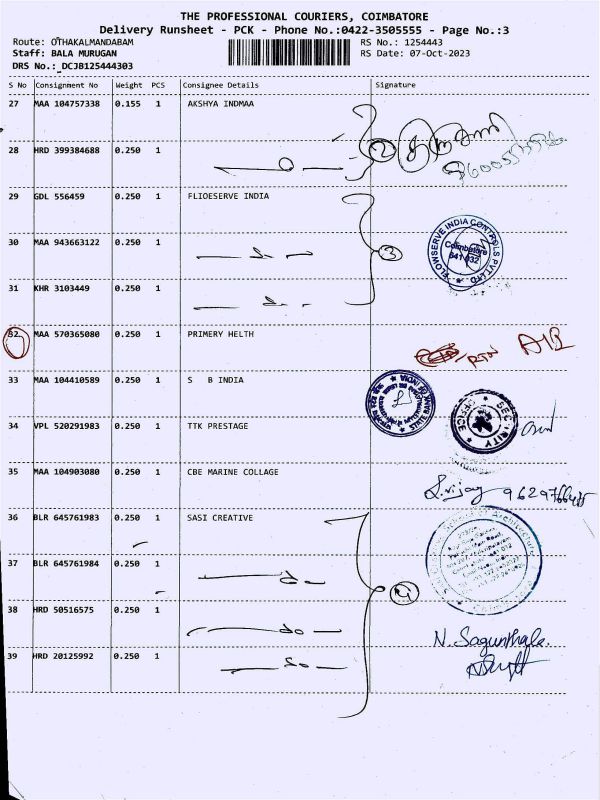 THE PROFESSIONAL COURIERS, COIMBATORE
Delivery Runsheet - PCK - Phone No.:0422-3505555 - Page No.:3
Route: OTHAKALMANDABAM RS No.: 1254443
Staff: BALA MURUGAN RS Date: 07-Oct-2023
DRS No.: DCJB125444303
S No Consignment No Weight PCS Consignee Details Signature
27 MAA 104757338 0.155 1 AKSHYA INDMAA
28 HRD 399384688 0.250 1 2
29 GDL 556459 0.250 1 FLIOESERVE INDIA
FLOWSERVE INDIA CONTROLS PVT LTD
Coimbatore
641 032
30 MAA 943663122 0.250 1 3
31 KHR 3103449 0.250 1
32 MAA 570365080 0.250 1 PRIMERY HELTH RTN
33 MAA 104410589 0.250 1 S B INDIA
STATE BANK OF INDIA
SECURITY OFFICE
34 VPL 520291983 0.250 1 TTK PRESTAGE
35 MAA 104903080 0.250 1 CBE MARINE COLLAGE
S.vijay 9629766485
36 BLR 645761983 0.250 1 SASI CREATIVE
37 BLR 645761984 0.250 1 4
38 HRD 50516575 0.250 1 do
N. Sagunthala
39 HRD 20125992 0.250 1 do